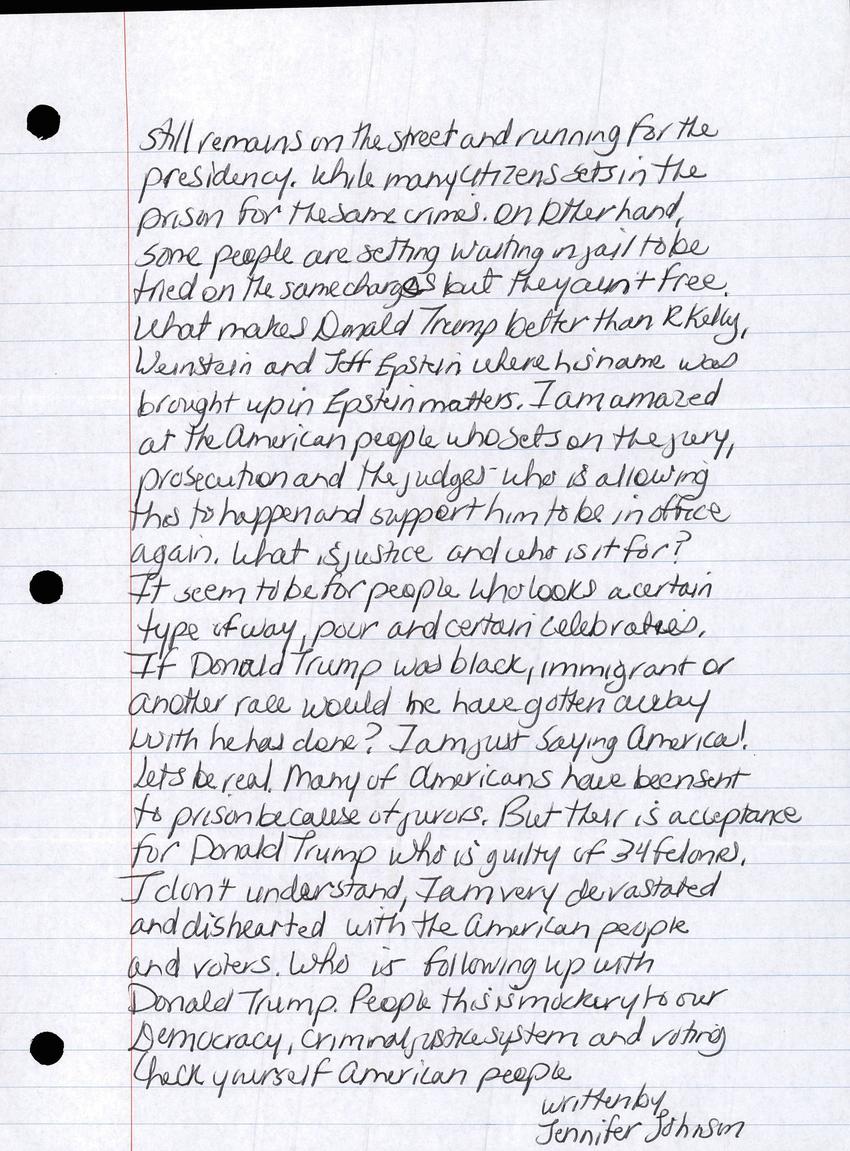 still remains on the street and running for the
presidency. While many citizens sets in the
prison for the same crimes. On other hand,
some people are setting waiting in jail to be
tried on the same charges but they aun't free.
What makes Donald Trump better than R Kelly,
Weinstein and Jeff Epstein where his name was
brought up in Epstein matters. I am amazed
at the American people who sets on the jury,
prosecution and the judges who is allowing
this to happen and support him to be in office
again. What is justice and who is it for?
It seem to be for people who looks a certain
type of way, pour and certain celebraties.
If Donald Trump was black, immigrant or
another race would he have gotten away
with he has done? I am just saying America!
Lets be real. Many of Americans have been sent
to prison because of jurors. But their is acceptance
for Donald Trump who is guilty of 34 felones.
I don't understand, I am very devastated
and dishearted with the American people
and voters. Who is following up with
Donald Trump. People this is mockery to our
Democracy, criminal justice system and voting
Check yourself American people
written by
Jennifer Johnson